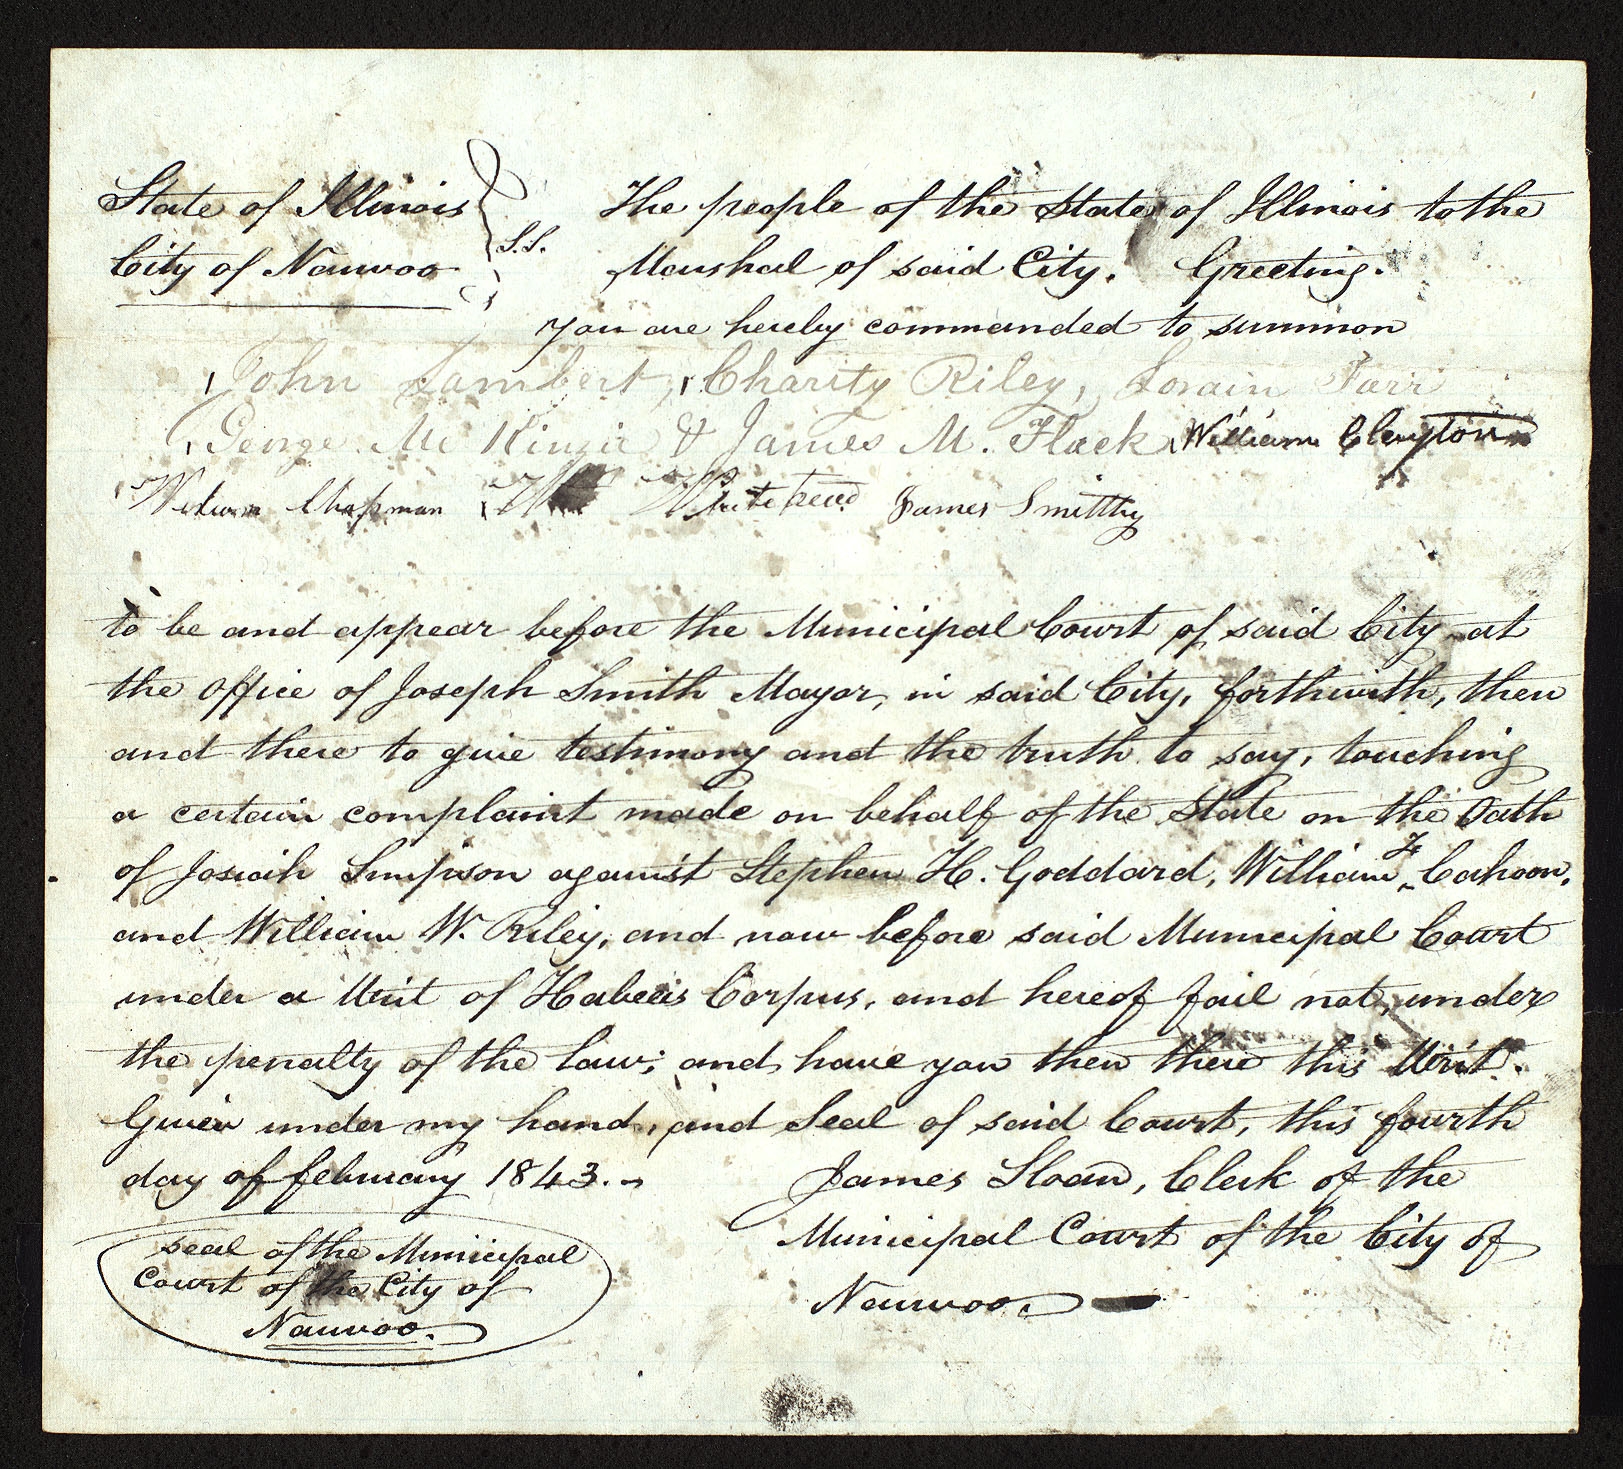 State of Illinois } S.S. The people of the State of Illinois to the
City of Nauvoo Marshal of said City. Greeting.
You are hereby commanded to summon
John Lambert, Charity Riley, Lorain Farr
George Mc Kinzie & James M. Flack William Clayton
William Chapman Wm Whitehead James Smithy
to be and appear before the Municipal Court of said City at
the Office of Joseph Smith Mayor, in said City, forthwith, then
and there to give testimony and the truth to say, touching
a certain complaint made on behalf of the State on the Oath
of Josiah Simpson against Stephen H. Goddard, William F. Cahoon,
and William W. Riley, and now before said Municipal Court
under a Writ of Habeas Corpus, and hereof fail not, under
the penalty of the law; and have you then there this Writ.
Given under my hand, and Seal of said Court, this fourth
day of february 1843.
James Sloan, Clerk of the
Municipal Court of the City of
Nauvoo.
seal of the Municipal
Court of the City of
Nauvoo.